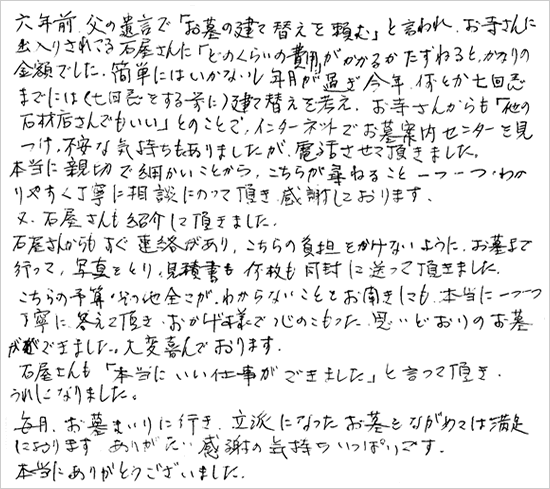 六年前、父の遺言で「お墓の建て替えを頼む」と言われ、お寺さんに
出入りされてる石屋さんに「どのくらいの費用がかかるかたずねると、かなりの
金額でした。簡単にはいかないし年月が過ぎ今年、何とか七回忌
までには(七回忌をする前に)建て替えを考え、お寺さんからも「他の
石材店さんでもいい」とのことで、インターネットでお墓案内センターを見
つけ、不安な気持ちもありましたが、電話させて頂きました。
本当に親切で細かいことから、こちらが尋ねること一つ一つ、わか
りやすく丁寧に相談にのって頂き感謝しております。
又、石屋さんも紹介して頂きました。
石屋さんからもすぐ連絡があり、こちらの負担をかけないように、お墓まで
行って、写真をとり、見積書も何枚も同封に送って頂きました。
こちらの予算・その他全てが、わからないことをお聞きしても、本当に一つ一つ
丁寧に答えて頂き、おかげ様で心のこもった思いどおりのお墓
ができました。大変喜んでおります。
石屋さんも「本当にいい仕事ができました」と言って頂き、
うれしくなりました。
毎月、お墓まいりに行き、立派になったお墓をながめては満足
しております ありがたい感謝の気持ちいっぱいです。
本当にありがとうございました。